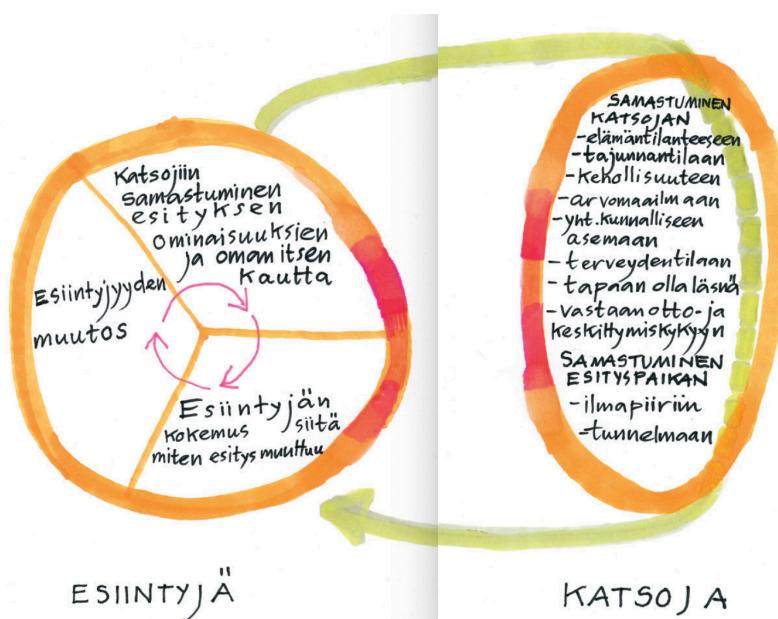 Katsojiin
samastuminen
esityksen
ominaisuuksien
ja oman itsen
kautta
Esiintyjyyden
muutos
Esiintyjän
kokemus siitä
miten esitys muuttuu
ESIINTYJÄ
SAMASTUMINEN
KATSOJAN
-elämäntilanteeseen
-tajunnantilaan
-kehollisuuteen
-arvomaailmaan
-yht.kunnalliseen
asemaan
-terveydentilaan
-tapaan olla läsnä
-vastaanotto- ja
keskittymiskykyyn
SAMASTUMINEN
ESITYSPAIKAN
-ilmapiiriin
-tunnelmaan
KATSOJA